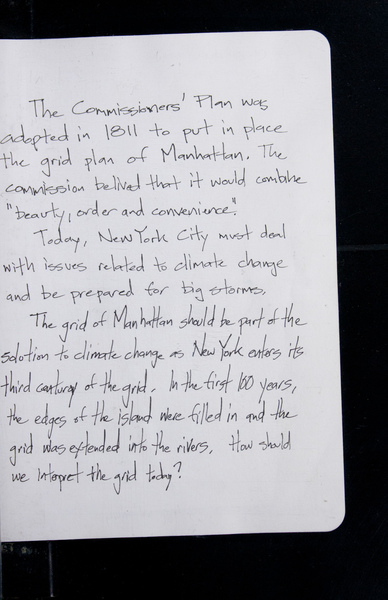 The Commissioners' Plan was
adopted in 1811 to put in place
the grid plan of Manhattan. The
commission belived that it would combine
"beauty, order and convenience".
Today, New York City must deal
with issues related to climate change
and be prepared for big storms.
The grid of Manhattan should be part of the
solution to climate change as New York enters its
third century of the grid. In the first 100 years,
the edges of the island were filled in and the
grid was extended into the rivers. How should
we interpret the grid today?